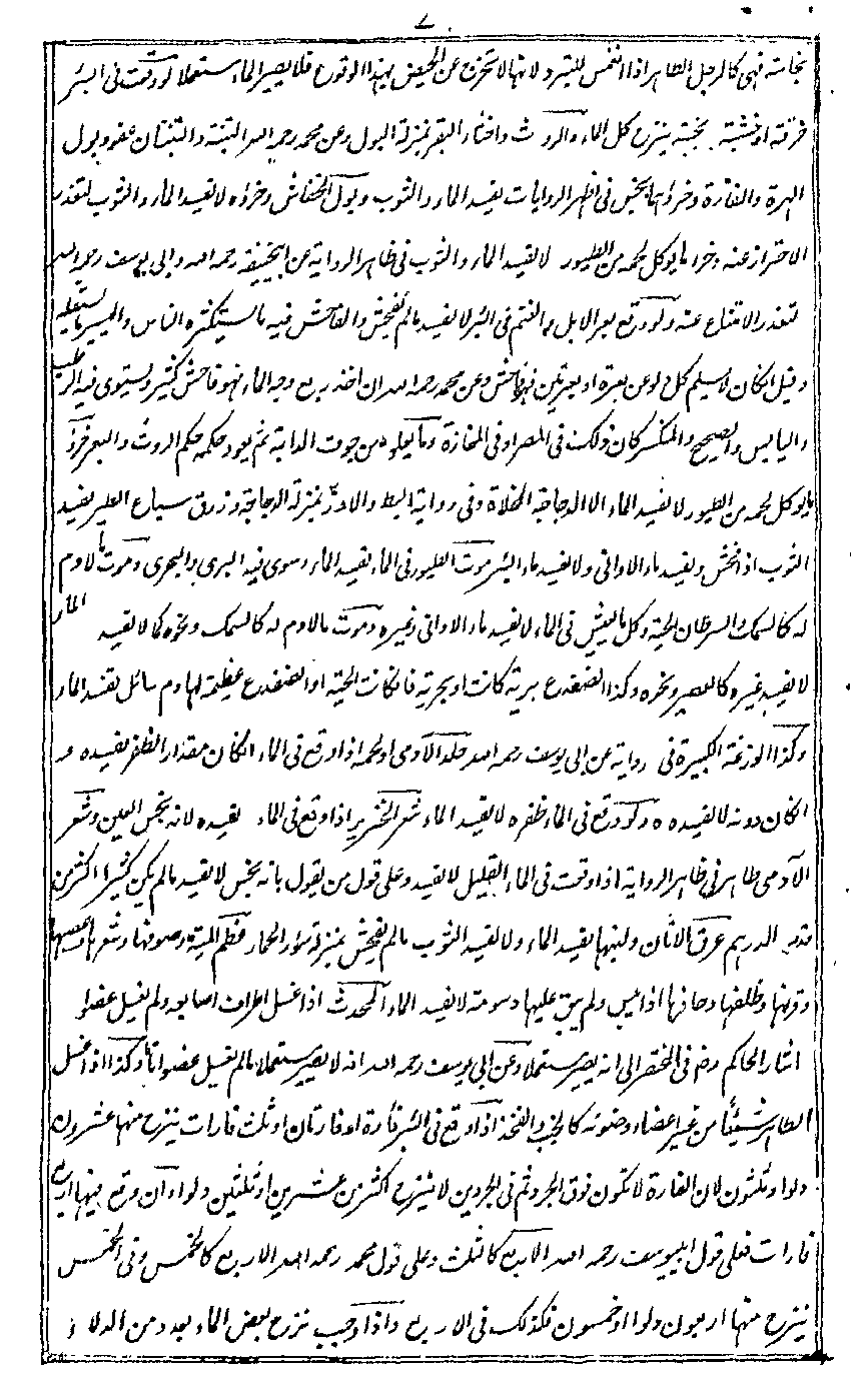 ٧
نجاسته فهى كالرجل الطاهر اذا انغمس للتبرد لانها لا تخرج عن الحيض بهذا الوقوع فلا يصير الماء مستعملا لو وقعت فى البئر
خرقة او خشبة نجسة ينزح كل الماء والروث واخثاء البقر بمنزلة البول وعن محمد رحمه الله التبنة والتبنتان عفو وبول
الهرة والفارة وخرؤهما نجس فى اظهر الروايات يفسد الماء والثوب وبول الخفاش وخرؤه لا يفسد الماء والثوب لتعذر
الاحتراز عنه وخرء ما يوكل لحمه من الطيور لا يفسد الماء والثوب فى ظاهر الرواية عن ابيحنيفة رحمه الله وابى يوسف رحمه الله
لتعذر الامتناع عنه ولو وقع بعر الابل والغنم فى البئر لا يفسد مالم يفحش والفاحش فيه ما يستكثره الناس واليسير ما يستقله
وقيل ان كان لا يسلم كل دلو عن بعرة او بعرتين فهو فاحش وعن محمد رحمه الله ان اخذ ربع وجه الماء فهو فاحش كثير ويستوى فيه الرطب
واليابس والصحيح والمنكسر كان ذلك فى المصر او فى المفازة وما يعلوه من جوف الدابة ثم يعود حكمه حكم الروث والبعر خرء
ما يوكل لحمه من الطيور لا يفسد الماء الا الدجاجة المخلاة وفى رواية البط والاوز بمنزلة الدجاجة وزرق سباع الطير يفسد
الثوب اذا فحش ويفسد ماء الاوانى ولا يفسد ماء البئر موت الطيور فى الماء يفسد الماء وسوى فيه البرى والبحرى وموت ما لا دم
له كالسمك والسرطان الحية وكل ما يعيش فى الماء لا يفسد ماء الاوانى وغيره وموت ما لا دم له كالسمك ونحوه كما لا يفسد الماء
لا يفسد غيره كالعصير ونحوه وكذا الضفدع برية كانت او بحرية فان كانت الحية او الضفدع عظيمة لها دم سائل يفسد الماء
وكذا الوزغة الكبيرة فى رواية عن ابى يوسف رحمه الله جلد الآدمى او لحمه اذا وقع فى الماء ان كان مقدار الظفر يفسده و
ان كان دونه لا يفسده ولو وقع فى الماء ظفره لا يفسد الماء شعر الخنزير اذا وقع فى الماء يفسده لانه نجس العين وشعر
الآدمى طاهر فى ظاهر الرواية اذا وقعت فى الماء القليل لا يفسد وعلى قول من يقول بانه نجس لا يفسد مالم يكن كثيرا اكثر من
قدر الدرهم عرق الاتان ولبنها يفسد الماء ولا يفسد الثوب مالم يفحش بمنزلة سؤر الحمار عظم الميتة وصوفها وشعرها وعصبها
وقرنها وظلفها وحافرها اذا يبس ولم يبق عليها دسومة لا يفسد الماء المحدث اذا غسل اطراف اصابعه ولم يغسل عضوا
اشار الحاكم رحم فى المختصر الى انه يصير مستعملا وعن ابى يوسف رحمه الله انه لا يصير مستعملا مالم يغسل عضوا تاما وكذا اذا غسل
الطاهر شيئا من غير اعضاء وضوئه كالجنب والفخذ اذا وقع فى البئر فارة او فارتان او ثلث فارات ينزح منها عشرون
دلوا وثلثون لان الفارة لا تكون فوق الجرذ ثم فى الجرذين لا ينزح اكثر من عشرين او ثلثين دلوا وان وقع فيها اربع
فارات فعلى قول ابيوسف رحمه الله الاربع كالثلث وعلى قول محمد رحمه الله الاربع كالخمس وفى الخمس
ينزح منها اربعون دلوا او خمسون فكذلك فى الاربع واذا وجب نزح بعض الماء بعدد من الدلاء